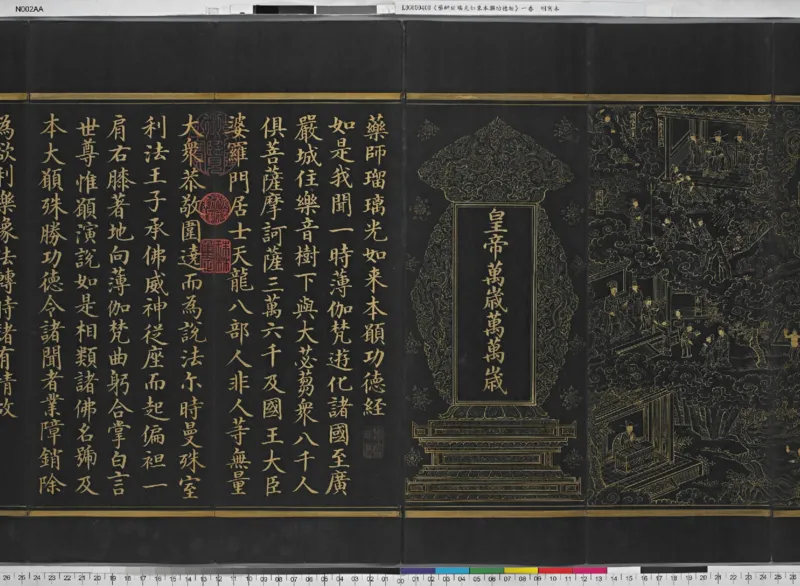 N002AA
皇帝萬歲萬萬歲
藥師瑠璃光如来本願功德經
如是我聞一時薄伽梵遊化諸國至廣
嚴城住樂音樹下與大苾芻衆八千人
俱菩薩摩訶薩三萬六千及國王大臣
婆羅門居士天龍八部人非人等無量
大衆恭敬圍遶而為說法尒時曼殊室
利法王子承佛威神從座而起偏袒一
肩右膝著地向薄伽梵曲躬合掌白言
世尊惟願演說如是相類諸佛名號及
本大願殊勝功德令諸聞者業障銷除
為欲利樂像法轉時諸有情故